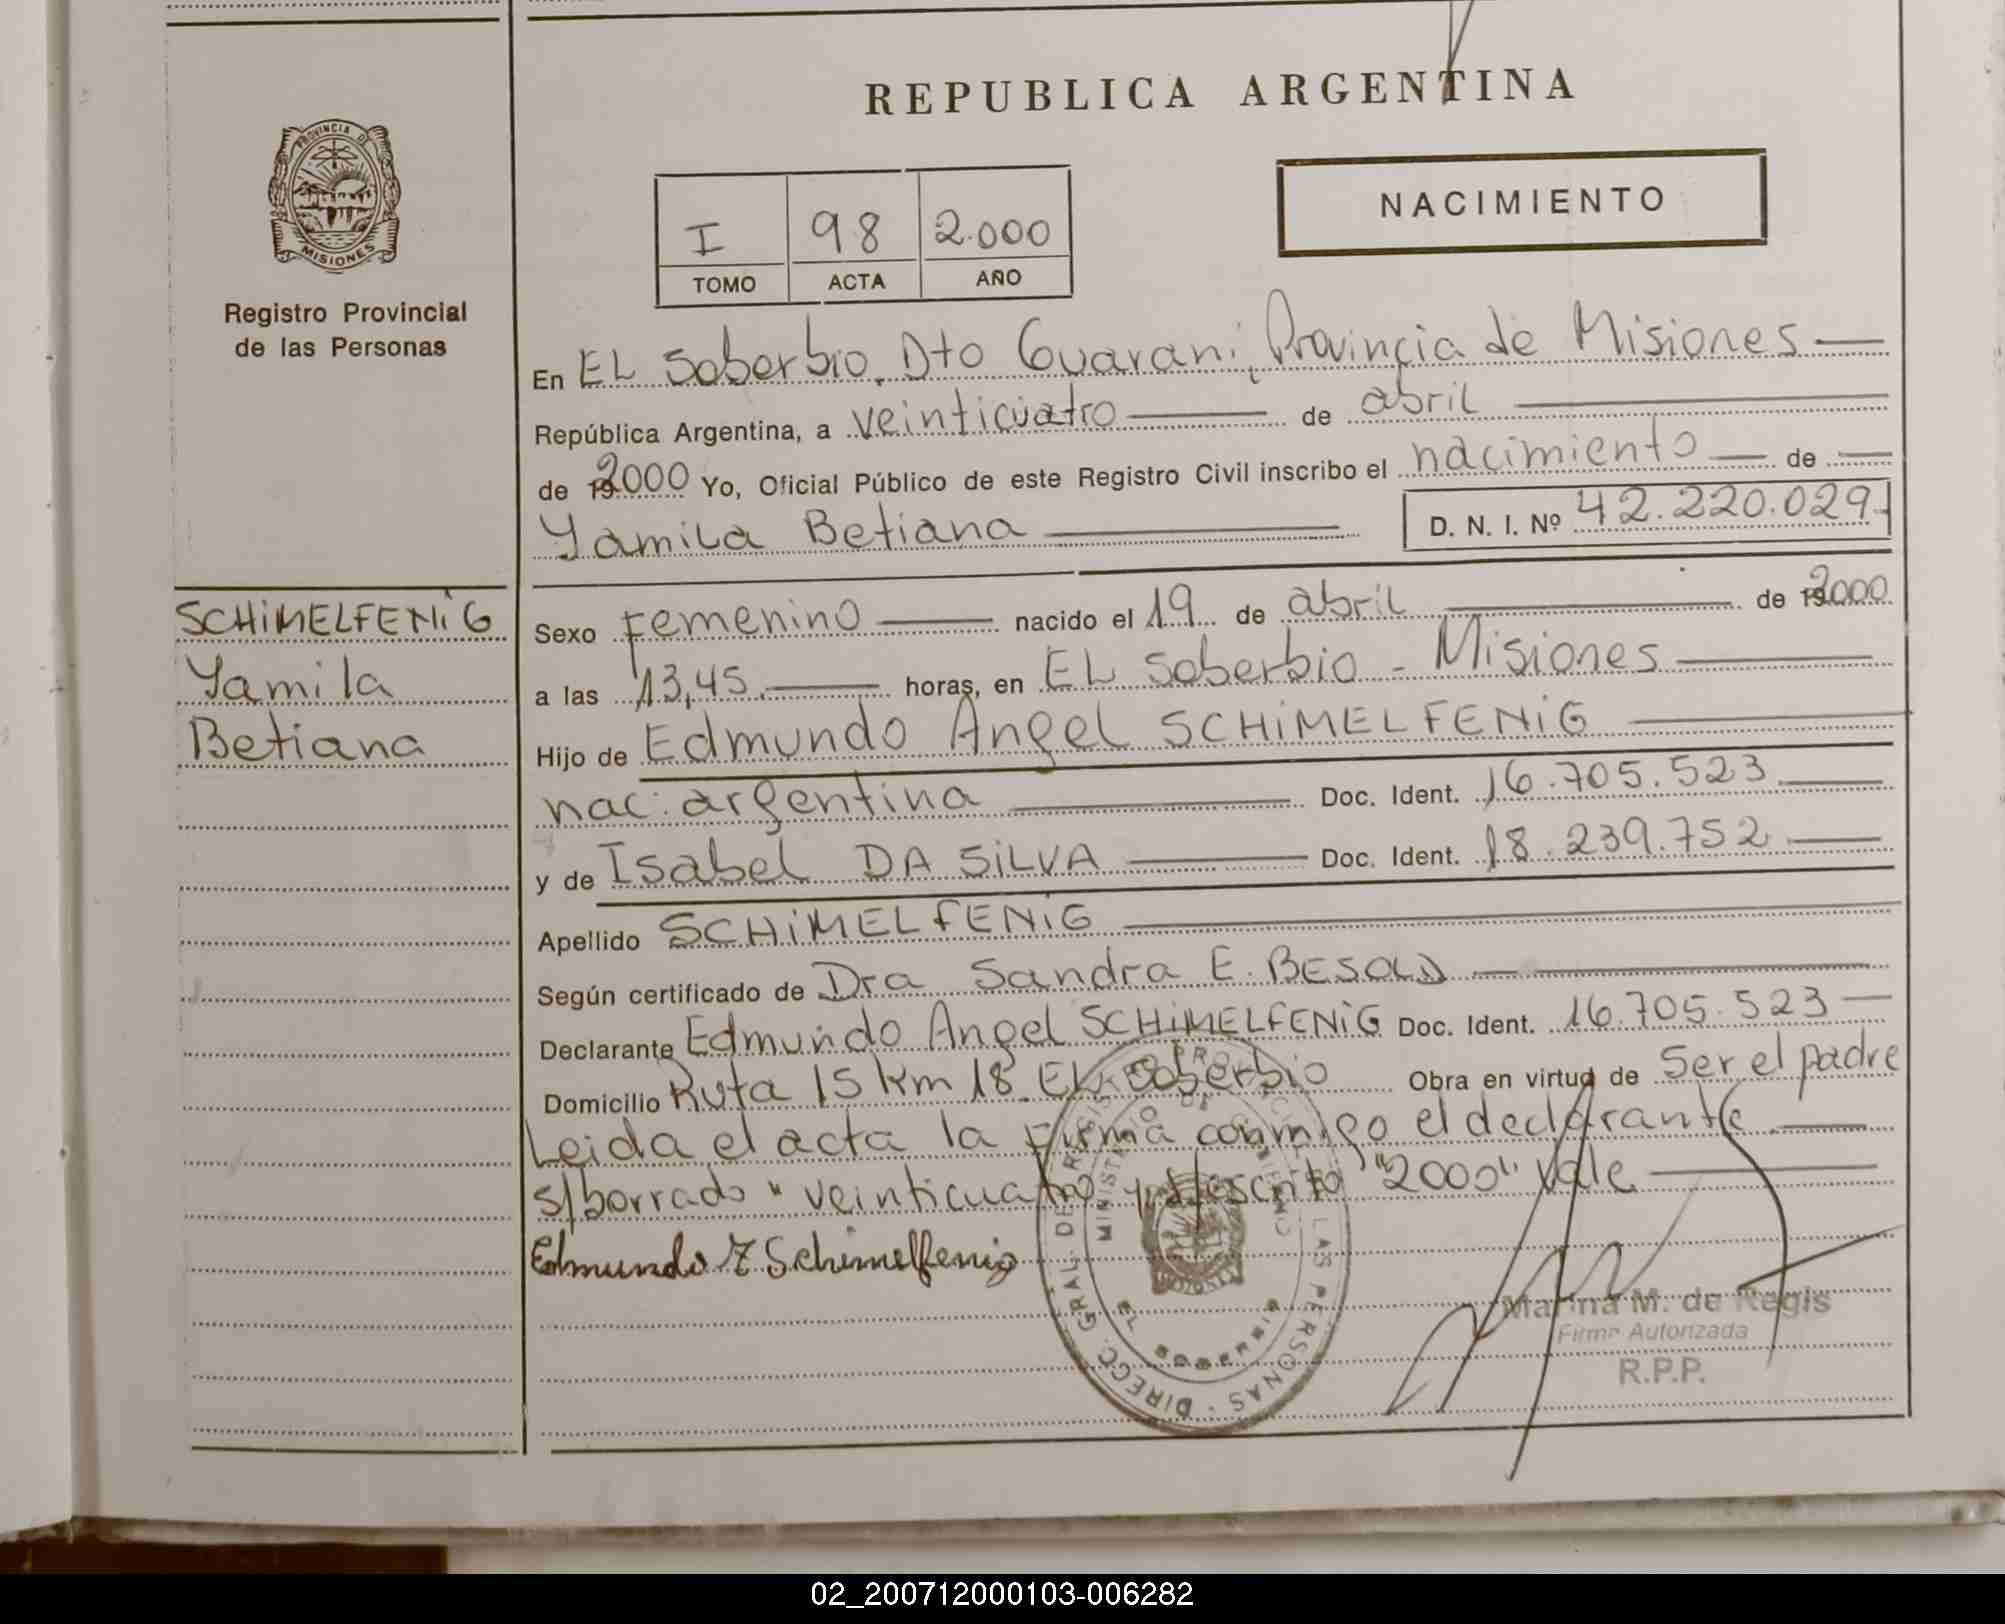 REPUBLICA ARGENTINA
PROVINCIA DE MISIONES
Registro Provincial
de las Personas
NACIMIENTO
I 98 2.000
TOMO ACTA AÑO
En EL Soberbio, Dto Guarani, Provincia de Misiones
República Argentina, a veinticuatro de abril
de 2000 Yo, Oficial Público de este Registro Civil inscribo el nacimiento de
Yamila Betiana D. N. I. Nº 42.220.029
SCHIMELFENIG
Yamila
Betiana
Sexo Femenino nacido el 19 de abril de 2000
a las 13,45 horas, en EL Soberbio - Misiones
Hijo de Edmundo Angel SCHIMELFENIG
nac. argentina Doc. Ident. 16.705.523
y de Isabel DA SILVA Doc. Ident. 18.239.752
Apellido SCHIMELFENIG
Según certificado de Dra Sandra E. BESOLD
Declarante Edmundo Angel SCHIMELFENIG Doc. Ident. 16.705.523
Domicilio Ruta 15 km 18 EL Soberbio Obra en virtud de Ser el padre
Leida el acta la Firma conmigo el declarante
s/borrado "veinticuatro y s/escrito "2000" Vale
Edmundo Schimelfenig
DIRECC. GRAL. DE REGISTRO PROVINCIAL DE LAS PERSONAS
MINISTERIO DE GOBIERNO
EL SOBERBIO
Marina M. de Regis
Firma Autorizada
R.P.P.
02_200712000103-006282